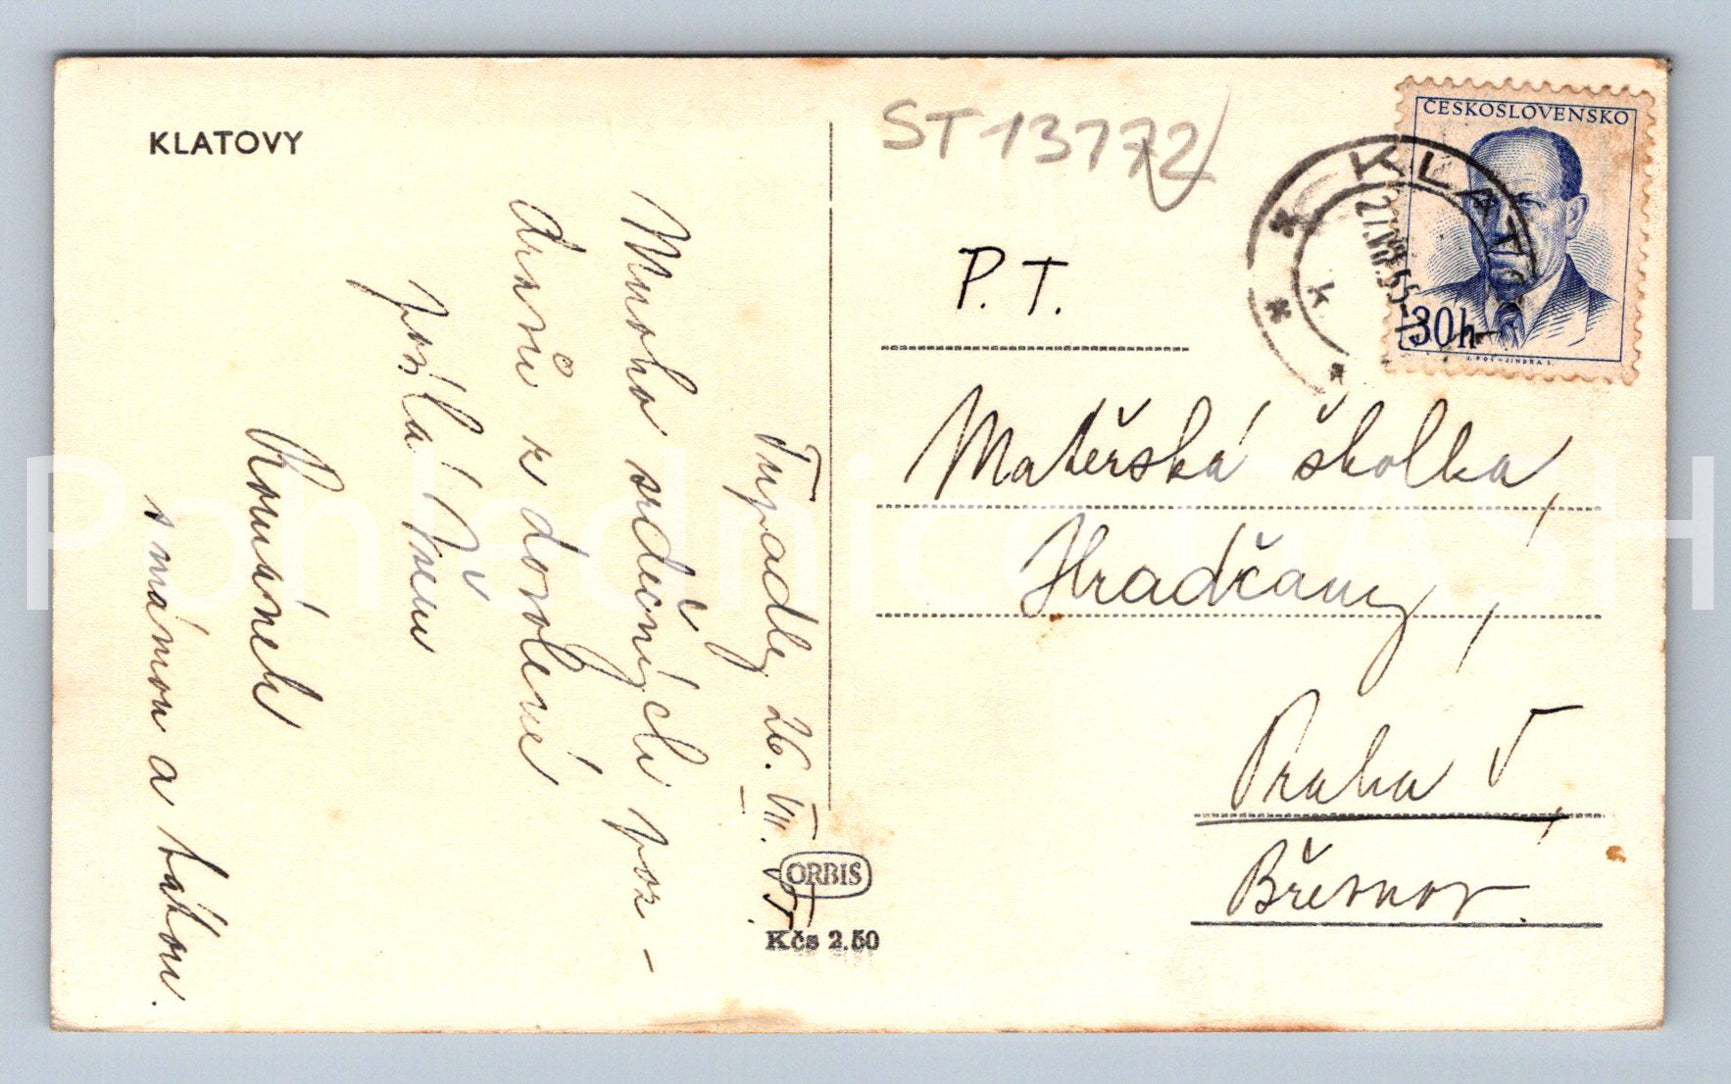 KLATOVY
Tupadly 26. VII. 55.
Mnoho srdečných poz-
dravů z dovolené
posílá Vám
Románek
s mámou a tátou.
ORBIS
Kčs 2.50
ST 13772
ČESKOSLOVENSKO
30h
KLATO
27.VII.55
k
P. T.
Mateřská školka,
Hradčany,
Praha V,
Břevnov.
Pohlednice SASH